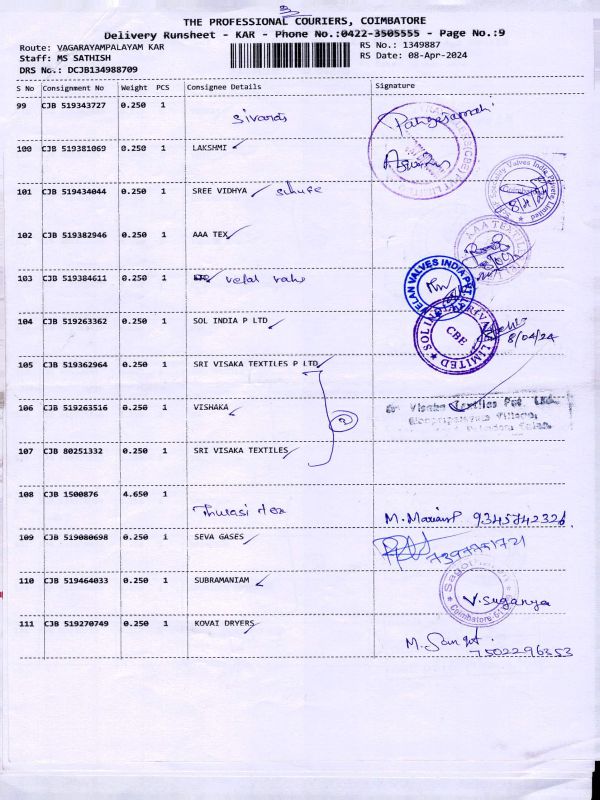 THE PROFESSIONAL COURIERS, COIMBATORE
Delivery Runsheet - KAR - Phone No.:0422-3505555 - Page No.:9
Route: VAGARAYAMPALAYAM KAR
RS No.: 1349887
Staff: MS SATHISH
RS Date: 08-Apr-2024
DRS No.: DCJB134988709
S No Consignment No Weight PCS Consignee Details Signature
99 CJB 519343727 0.250 1
100 CJB 519381069 0.250 1 LAKSHMI
101 CJB 519434044 0.250 1 SREE VIDHYA
8/4/24
102 CJB 519382946 0.250 1 AAA TEX
AAA TEXTIL
103 CJB 519384611 0.250 1
VELAN VALVES INDIA PVT
104 CJB 519263362 0.250 1 SOL INDIA P LTD
SOL INDIA PRIVATE LIMITED
CBE
8/04/24
105 CJB 519362964 0.250 1 SRI VISAKA TEXTILES P LTD
106 CJB 519263516 0.250 1 VISHAKA
Visaka Textiles Pvt Ltd.
107 CJB 80251332 0.250 1 SRI VISAKA TEXTILES
108 CJB 1500876 4.650 1
Thulasi tex M. 9345742326
109 CJB 519080698 0.250 1 SEVA GASES
7397751721
110 CJB 519464033 0.250 1 SUBRAMANIAM
V. Suganya
Coimbatore
111 CJB 519270749 0.250 1 KOVAI DRYERS
7502296353